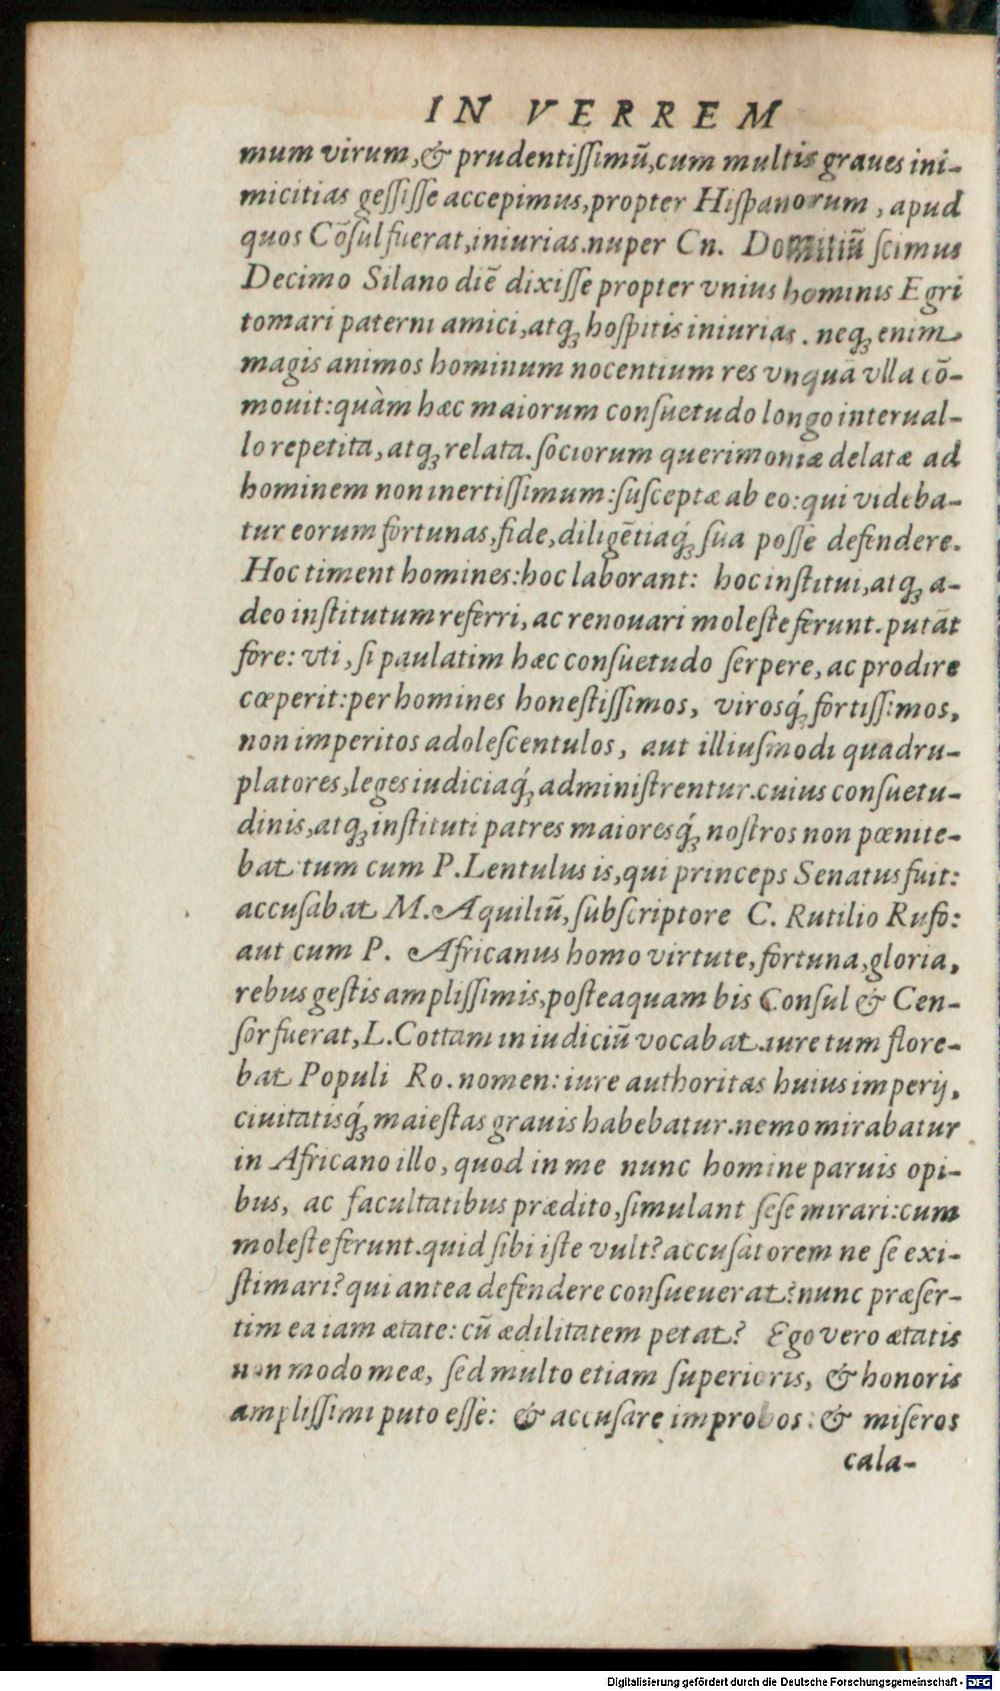 IN VERREM
mum virum, & prudentiſſimũ, cum multis graues ini-
micitias geſſiſſe accepimus, propter Hiſpanorum, apud
quos Cõſul fuerat, iniurias. nuper Cn. Domitiũ ſcimus
Decimo Silano diẽ dixiſſe propter vnius hominis Egri
tomari paterni amici, atq; hoſpitis iniurias. neq; enim
magis animos hominum nocentium res vnquã vlla cõ-
mouit: quàm hæc maiorum conſuetudo longo interual-
lo repetita, atq; relata. ſociorum querimoniæ delatæ ad
hominem non inertiſſimum: ſuſceptæ ab eo: qui videba-
tur eorum fortunas, fide, diligẽtiaq́; ſua poſſe defendere.
Hoc timent homines: hoc laborant: hoc inſtitui, atq; a-
deo inſtitutum referri, ac renouari moleſte ferunt. putãt
fore: vti, ſi paulatim hæc conſuetudo ſerpere, ac prodire
cœperit: per homines honeſtiſſimos, virosq́; fortiſſimos,
non imperitos adoleſcentulos, aut illiuſmodi quadru-
platores, leges iudiciaq́; adminiſtrentur. cuius conſuetu-
dinis, atq; inſtituti patres maioresq́; noſtros non pœnite-
bat tum cum P. Lentulus is, qui princeps Senatus fuit:
accuſabat M. Aquiliũ, ſubſcriptore C. Rutilio Rufo:
aut cum P. Africanus homo virtute, fortuna, gloria,
rebus geſtis ampliſſimis, poſteaquam bis Conſul & Cen-
ſor fuerat, L. Cottam in iudiciũ vocabat. iure tum flore-
bat Populi Ro. nomen: iure authoritas huius imperij,
ciuitatisq́; maieſtas grauis habebatur. nemo mirabatur
in Africano illo, quod in me nunc homine paruis opi-
bus, ac facultatibus prædito, ſimulant ſeſe mirari: cum
moleſte ferunt. quid ſibi iſte vult? accuſatorem ne ſe exi-
ſtimari? qui antea defendere conſueuerat? nunc præſer-
tim ea iam ætate: cũ ædilitatem petat? Ego vero ætatis
non modo meæ, ſed multo etiam ſuperioris, & honoris
ampliſſimi puto eſſe: & accuſare improbos: & miſeros
cala-
Digitalisierung gefördert durch die Deutsche Forschungsgemeinschaft - DFG